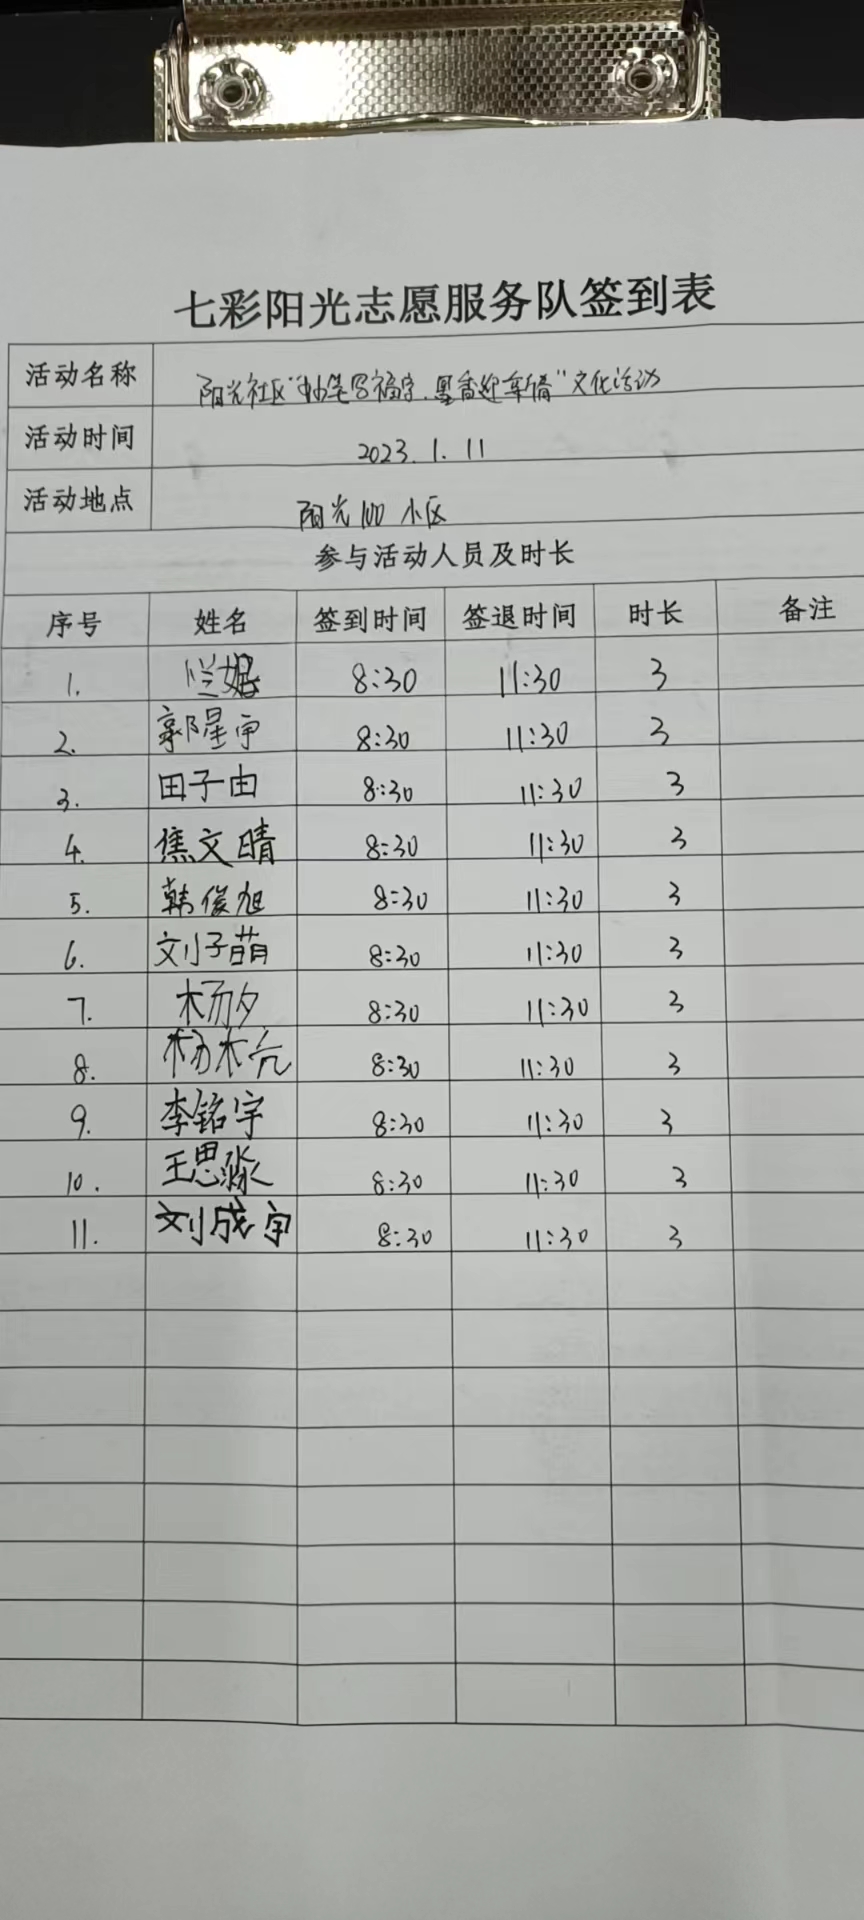 七彩阳光志愿服务队签到表
活动名称 阳光社区“妙笔写福字.墨香迎年情”文化活动
活动时间 2023.1.11
活动地点 阳光100小区
参与活动人员及时长
序号 姓名 签到时间 签退时间 时长 备注
1. 8:30 11:30 3
2. 郭星宇 8:30 11:30 3
3. 田子由 8:30 11:30 3
4. 焦文晴 8:30 11:30 3
5. 韩俊旭 8:30 11:30 3
6. 刘子萌 8:30 11:30 3
7. 杨夕 8:30 11:30 3
8. 8:30 11:30 3
9. 李铭宇 8:30 11:30 3
10. 王思淼 8:30 11:30 3
11. 刘成宇 8:30 11:30 3